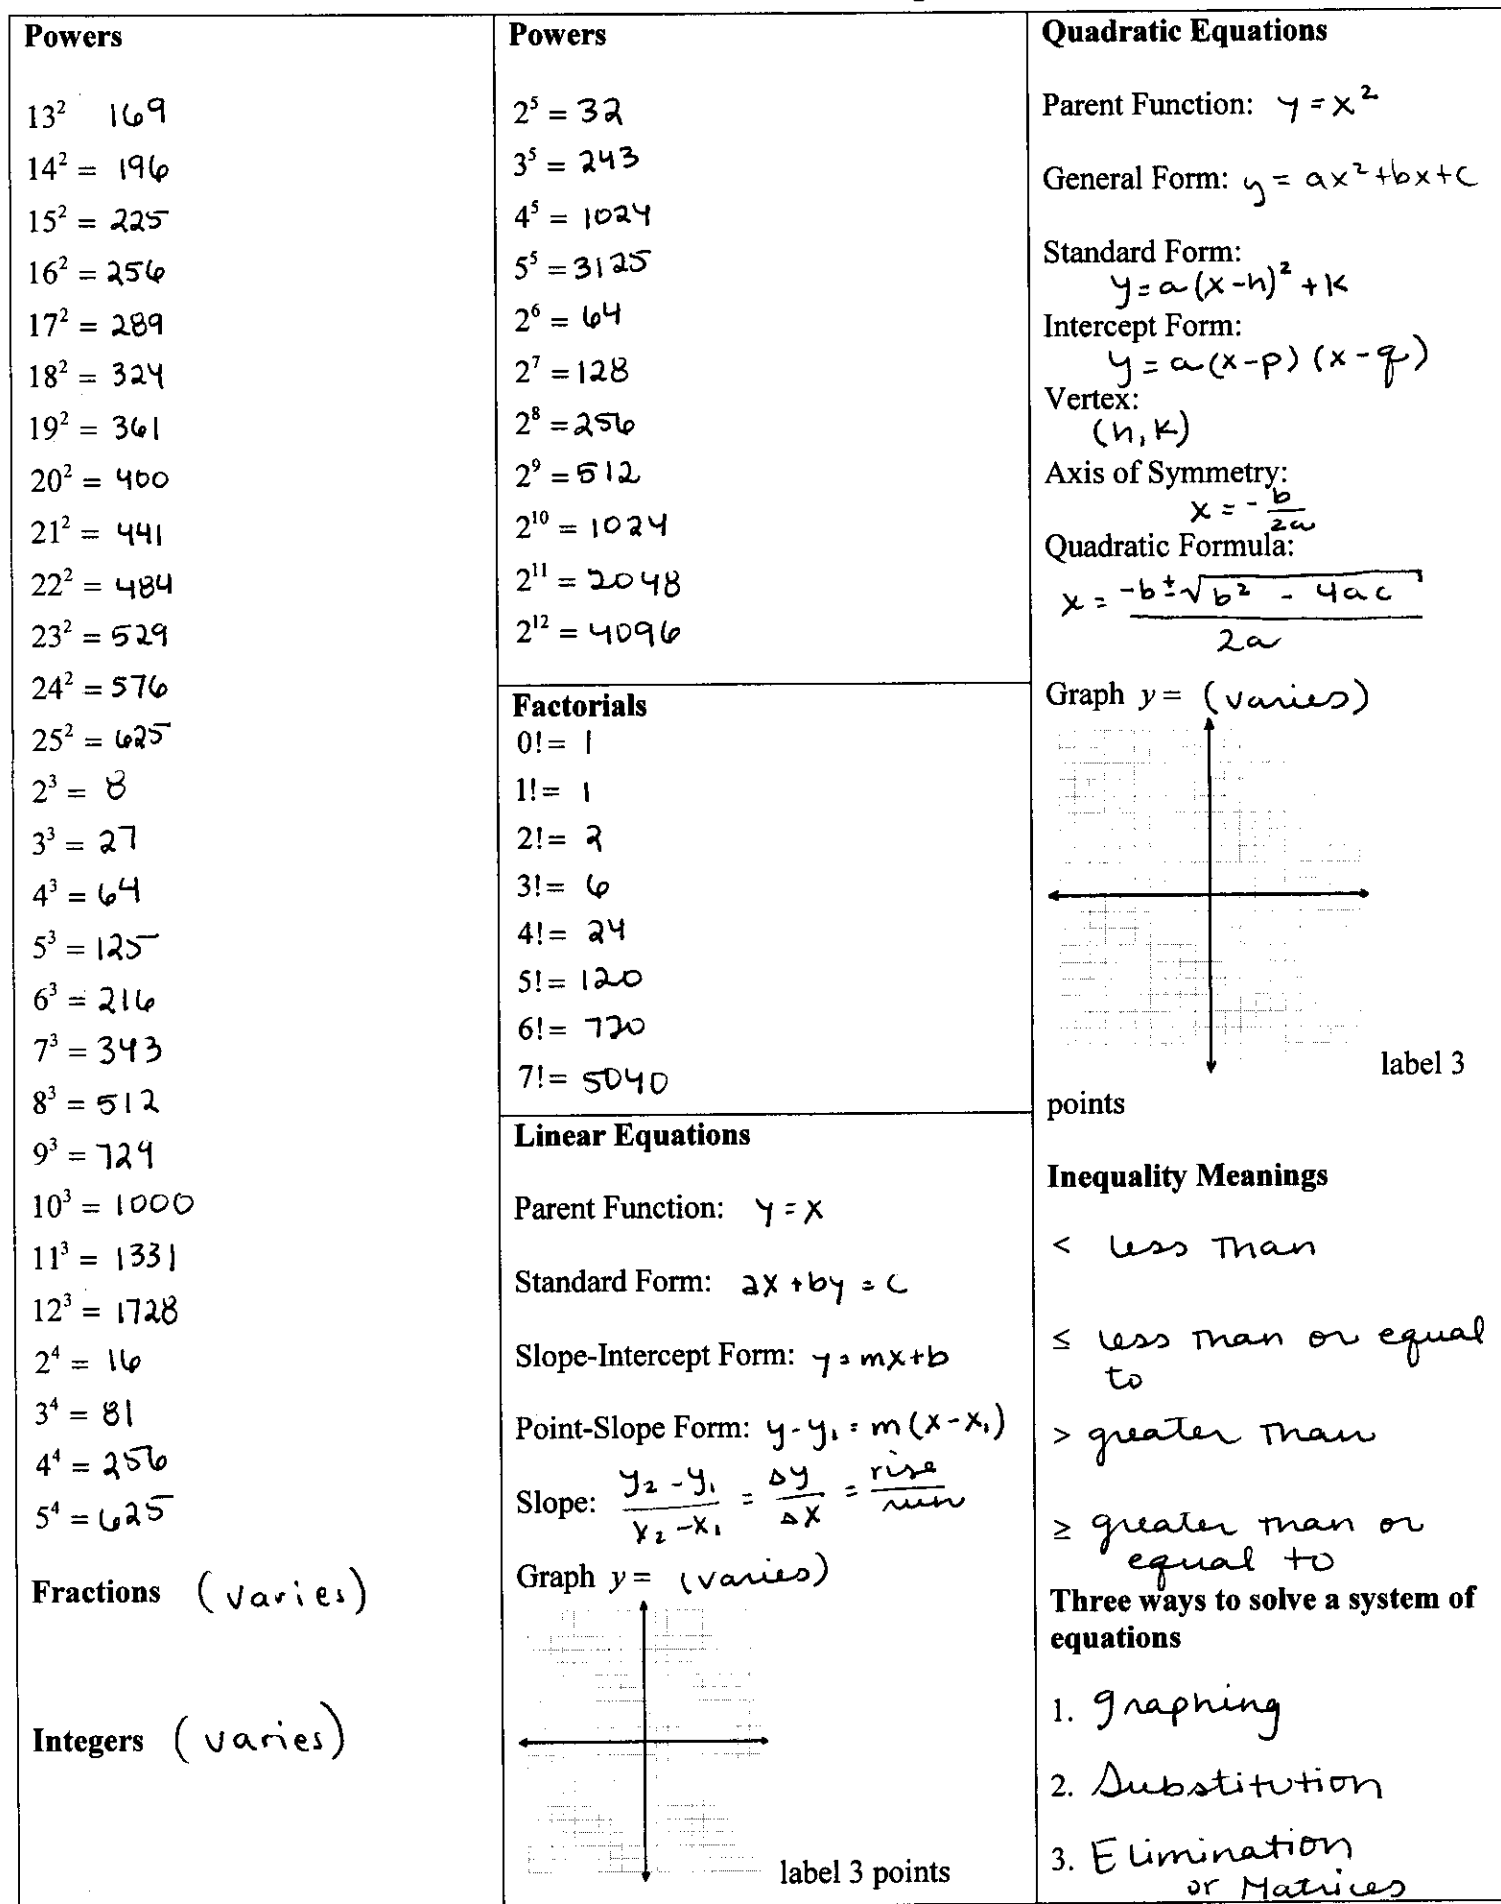 Powers
13² 169
14² = 196
15² = 225
16² = 256
17² = 289
18² = 324
19² = 361
20² = 400
21² = 441
22² = 484
23² = 529
24² = 576
25² = 625
2³ = 8
3³ = 27
4³ = 64
5³ = 125
6³ = 216
7³ = 343
8³ = 512
9³ = 729
10³ = 1000
11³ = 1331
12³ = 1728
2⁴ = 16
3⁴ = 81
4⁴ = 256
5⁴ = 625
Fractions (varies)
Integers (varies)
Powers
2⁵ = 32
3⁵ = 243
4⁵ = 1024
5⁵ = 3125
2⁶ = 64
2⁷ = 128
2⁸ = 256
2⁹ = 512
2¹⁰ = 1024
2¹¹ = 2048
2¹² = 4096
Factorials
0! = 1
1! = 1
2! = 2
3! = 6
4! = 24
5! = 120
6! = 720
7! = 5040
Linear Equations
Parent Function: y = x
Standard Form: ax + by = c
Slope-Intercept Form: y = mx+b
Point-Slope Form: y - y₁ = m(x-x₁)
Slope: (y₂ - y₁)/(x₂ - x₁) = Δy/Δx = rise/run
Graph y = (varies)
label 3 points
Quadratic Equations
Parent Function: y = x²
General Form: y = ax²+bx+c
Standard Form:
y = a(x-h)² + k
Intercept Form:
y = a(x-p)(x-q)
Vertex:
(h,k)
Axis of Symmetry:
x = -b/2a
Quadratic Formula:
x = (-b±√(b² - 4ac))/2a
Graph y = (varies)
label 3
points
Inequality Meanings
< less than
≤ less than or equal
to
> greater than
≥ greater than or
equal to
Three ways to solve a system of
equations
1. graphing
2. Substitution
3. Elimination
or Matrices